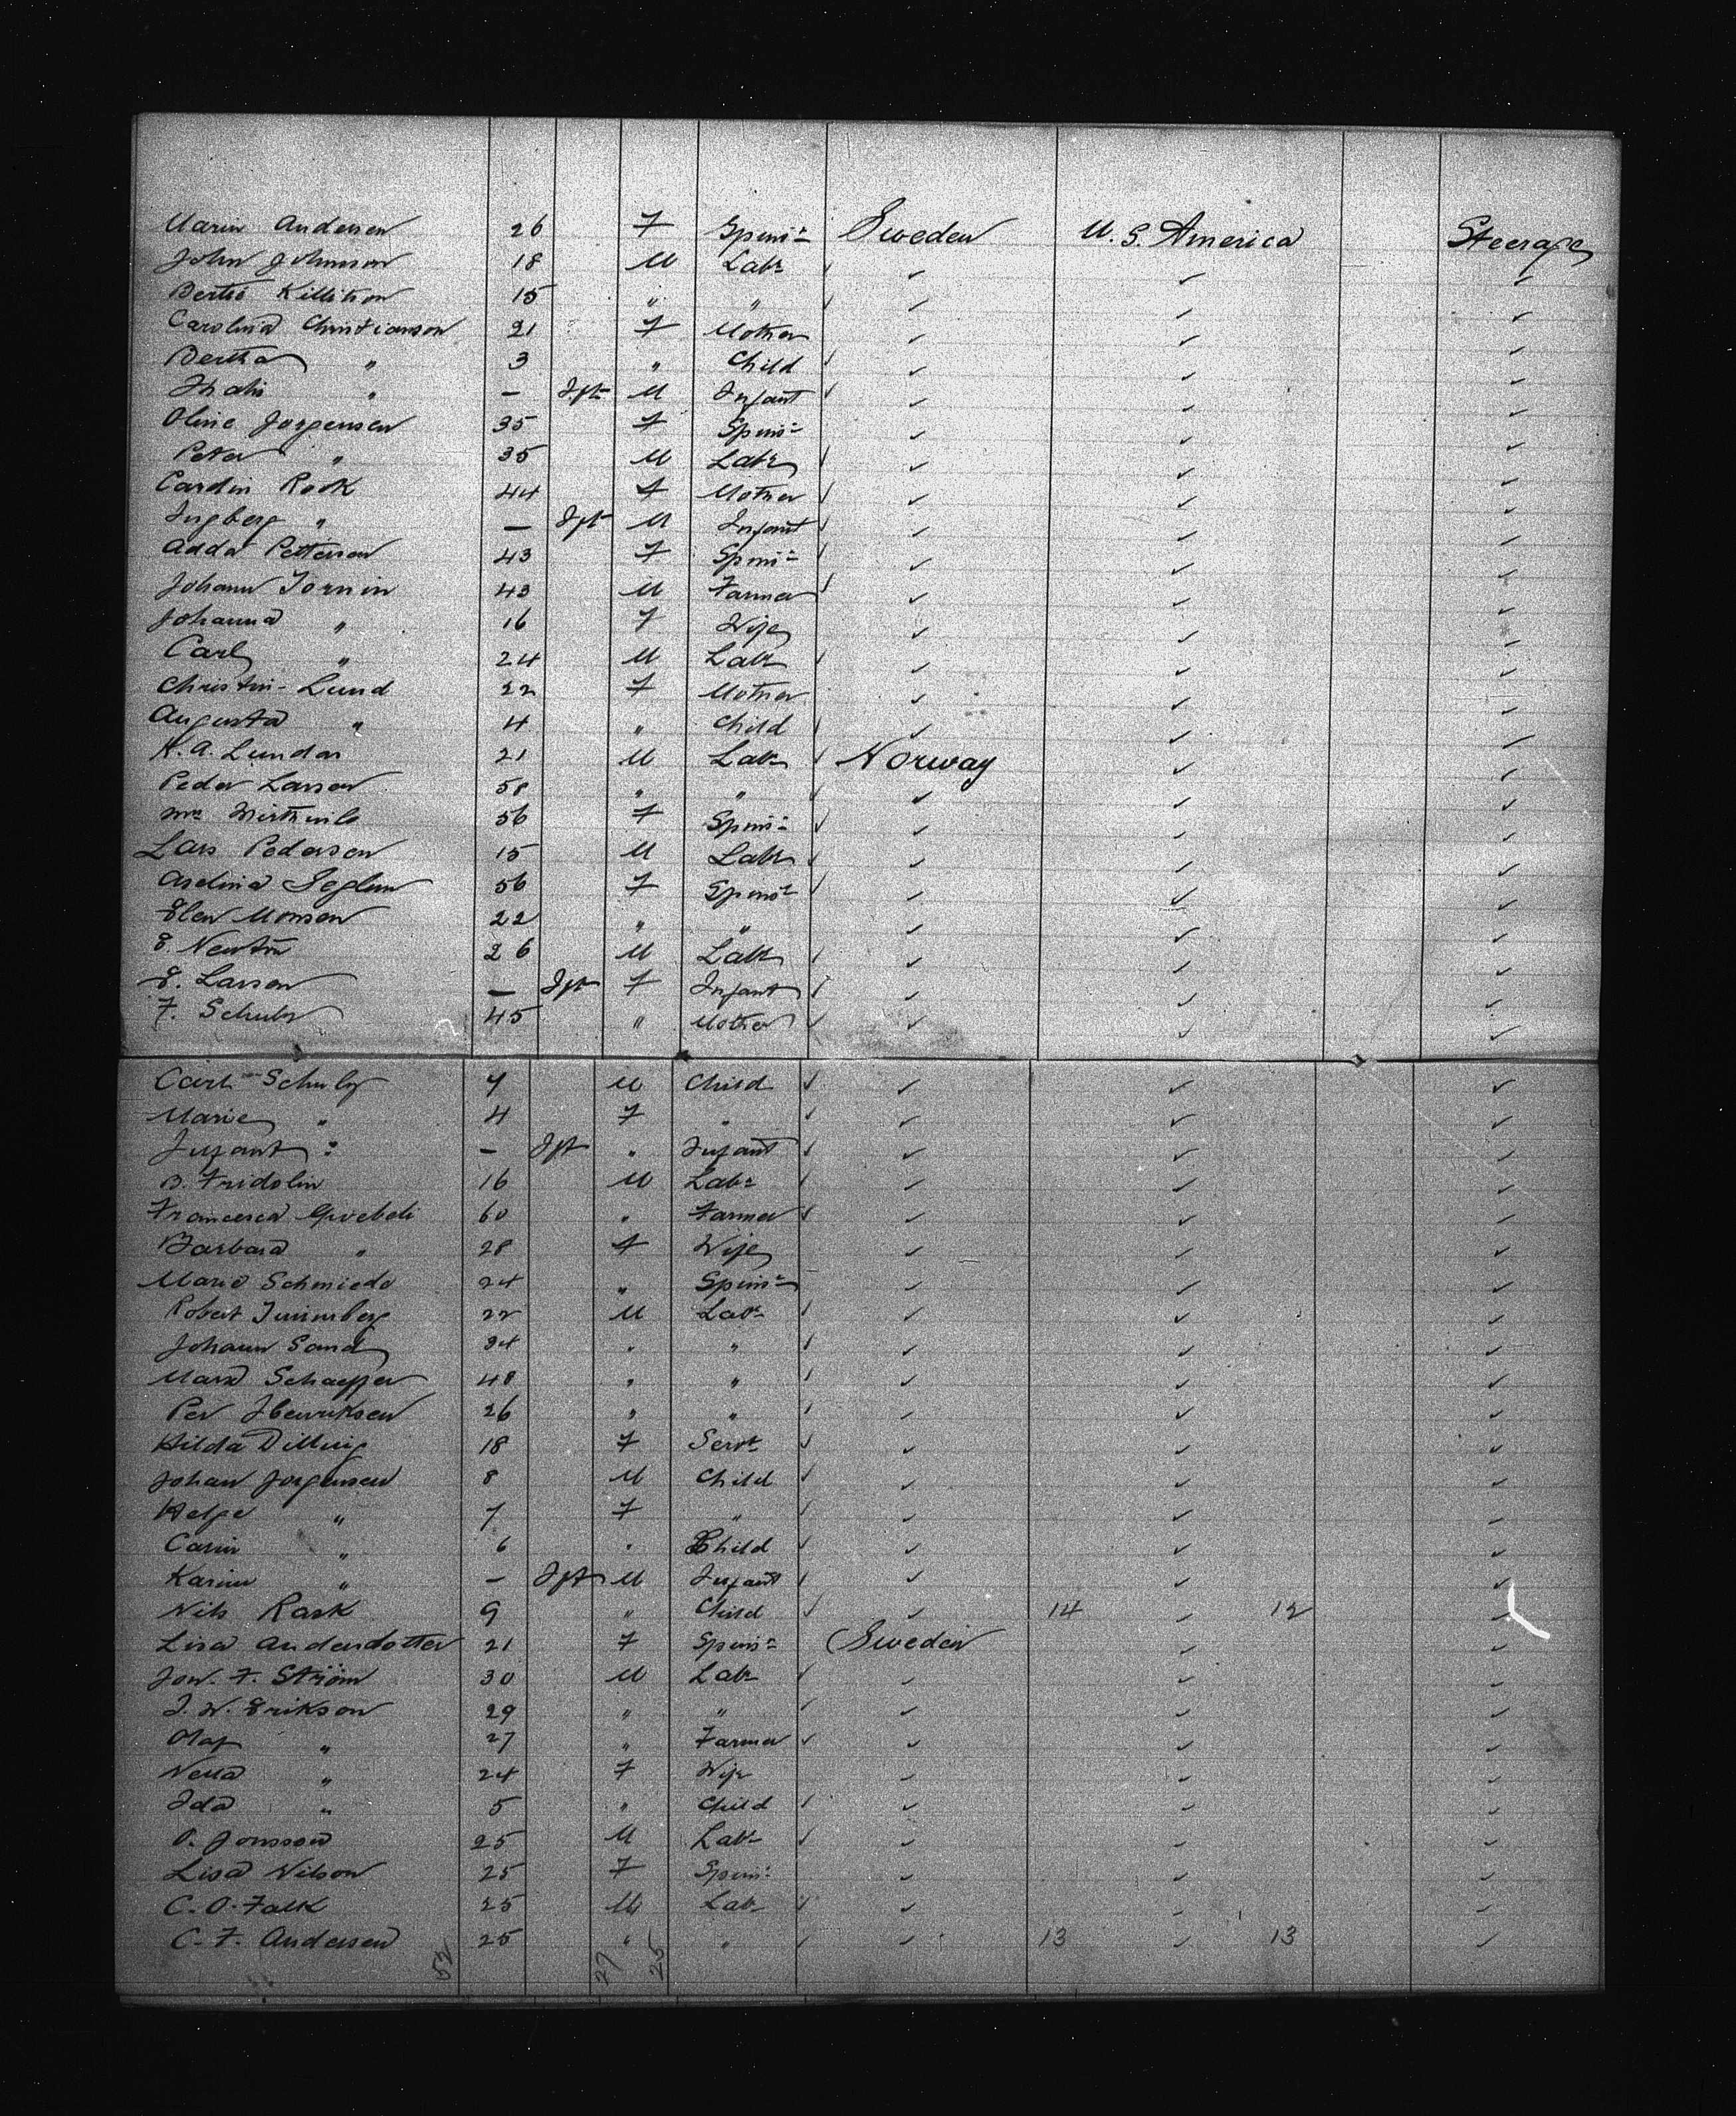 Marin Andersen 26 F Spinr Sweden U.S. America Steerage
John Johnson 18 M Labr ✓ ✓ ✓ ✓
Bertis Killitson 15 " " ✓ ✓ ✓ ✓
Carolina Christianson 21 F Mother ✓ ✓ ✓
Bertha " 3 " Child ✓ ✓ ✓ ✓
" — Ift M Infant ✓ ✓ ✓ ✓
Oline Jorgensen 35 F Spinr ✓ ✓ ✓
Peter " 35 M Labr ✓ ✓ ✓ ✓
Cardin Rook 44 F Mother ✓ ✓ ✓ ✓
Ingberg " — Ift M Infant ✓ ✓ ✓ ✓
Adda Petterson 43 F Spinr ✓ ✓ ✓ ✓
Johann Tornin 43 M Farmer ✓ ✓ ✓ ✓
Johanna " 16 F Wife ✓ ✓ ✓
Carl " 24 M Labr ✓ ✓ ✓ ✓
Christin Lund 22 F Mother ✓ ✓ ✓
Augusta " 4 " Child ✓ ✓ ✓ ✓
K. A. Lundar 21 M Labr ✓ Norway ✓ ✓
Peder Larson 58 " " ✓ ✓ ✓ ✓
Mrs 56 F Spinr ✓ ✓ ✓ ✓
Lars Pederson 15 M Labr ✓ ✓ ✓ ✓
Seglem 56 F Spinr ✓ ✓ ✓ ✓
Elen Monsen 22 " " ✓ ✓ ✓
E. Newton 26 M Labr ✓ ✓ ✓ ✓
E. Larson — Ift F Infant ✓ ✓ ✓ ✓
F. Schulz 45 " Mother ✓ ✓ ✓ ✓
Carl Schulz 7 M Child ✓ ✓ ✓ ✓
Marie " 4 F " ✓ ✓ ✓ ✓
Infant " — Ift " Infant ✓ ✓ ✓ ✓
B. Fridolin 16 M Labr ✓ ✓ ✓ ✓
Francesca Goebeli 60 " Farmer ✓ ✓ ✓ ✓
Barbara " 28 F Wife ✓ ✓ ✓
Marie Schmiede 24 " Spinr ✓ ✓ ✓
Robert 22 M Labr ✓ ✓ ✓ ✓
Johann Sand 34 " " ✓ ✓ ✓ ✓
Schaeffer 48 " " ✓ ✓ ✓ ✓
Per Henriksen 26 " " ✓ ✓ ✓ ✓
Hilda Dilling 18 F Servt ✓ ✓ ✓ ✓
Johan Jorgensen 8 M Child ✓ ✓ ✓ ✓
Helge " 7 F " ✓ ✓ ✓ ✓
Carin " 6 " Child ✓ ✓ ✓ ✓
Karin " — Ift M Infant ✓ ✓ ✓ ✓
Nils Rask 9 " Child ✓ ✓ 14 ✓ 12 ✓
Lisa Andersdotter 21 F Spinr Sweden ✓ ✓
Jon. F. Ström 30 M Labr ✓ ✓ ✓ ✓
J. W. Erikson 29 " " ✓ ✓ ✓ ✓
Olaf " 27 " Farmer ✓ ✓ ✓ ✓
Nella " 24 F Wife ✓ ✓ ✓
Ida " 5 " Child ✓ ✓ ✓ ✓
O. Jonsson 25 M Labr ✓ ✓ ✓ ✓
Lisa Nilson 25 F Spinr ✓ ✓ ✓
C. O. Falk 25 M Labr ✓ ✓ ✓ ✓
C. F. Andersen 25 " " ✓ ✓ 13 ✓ 13 ✓
52 27 25